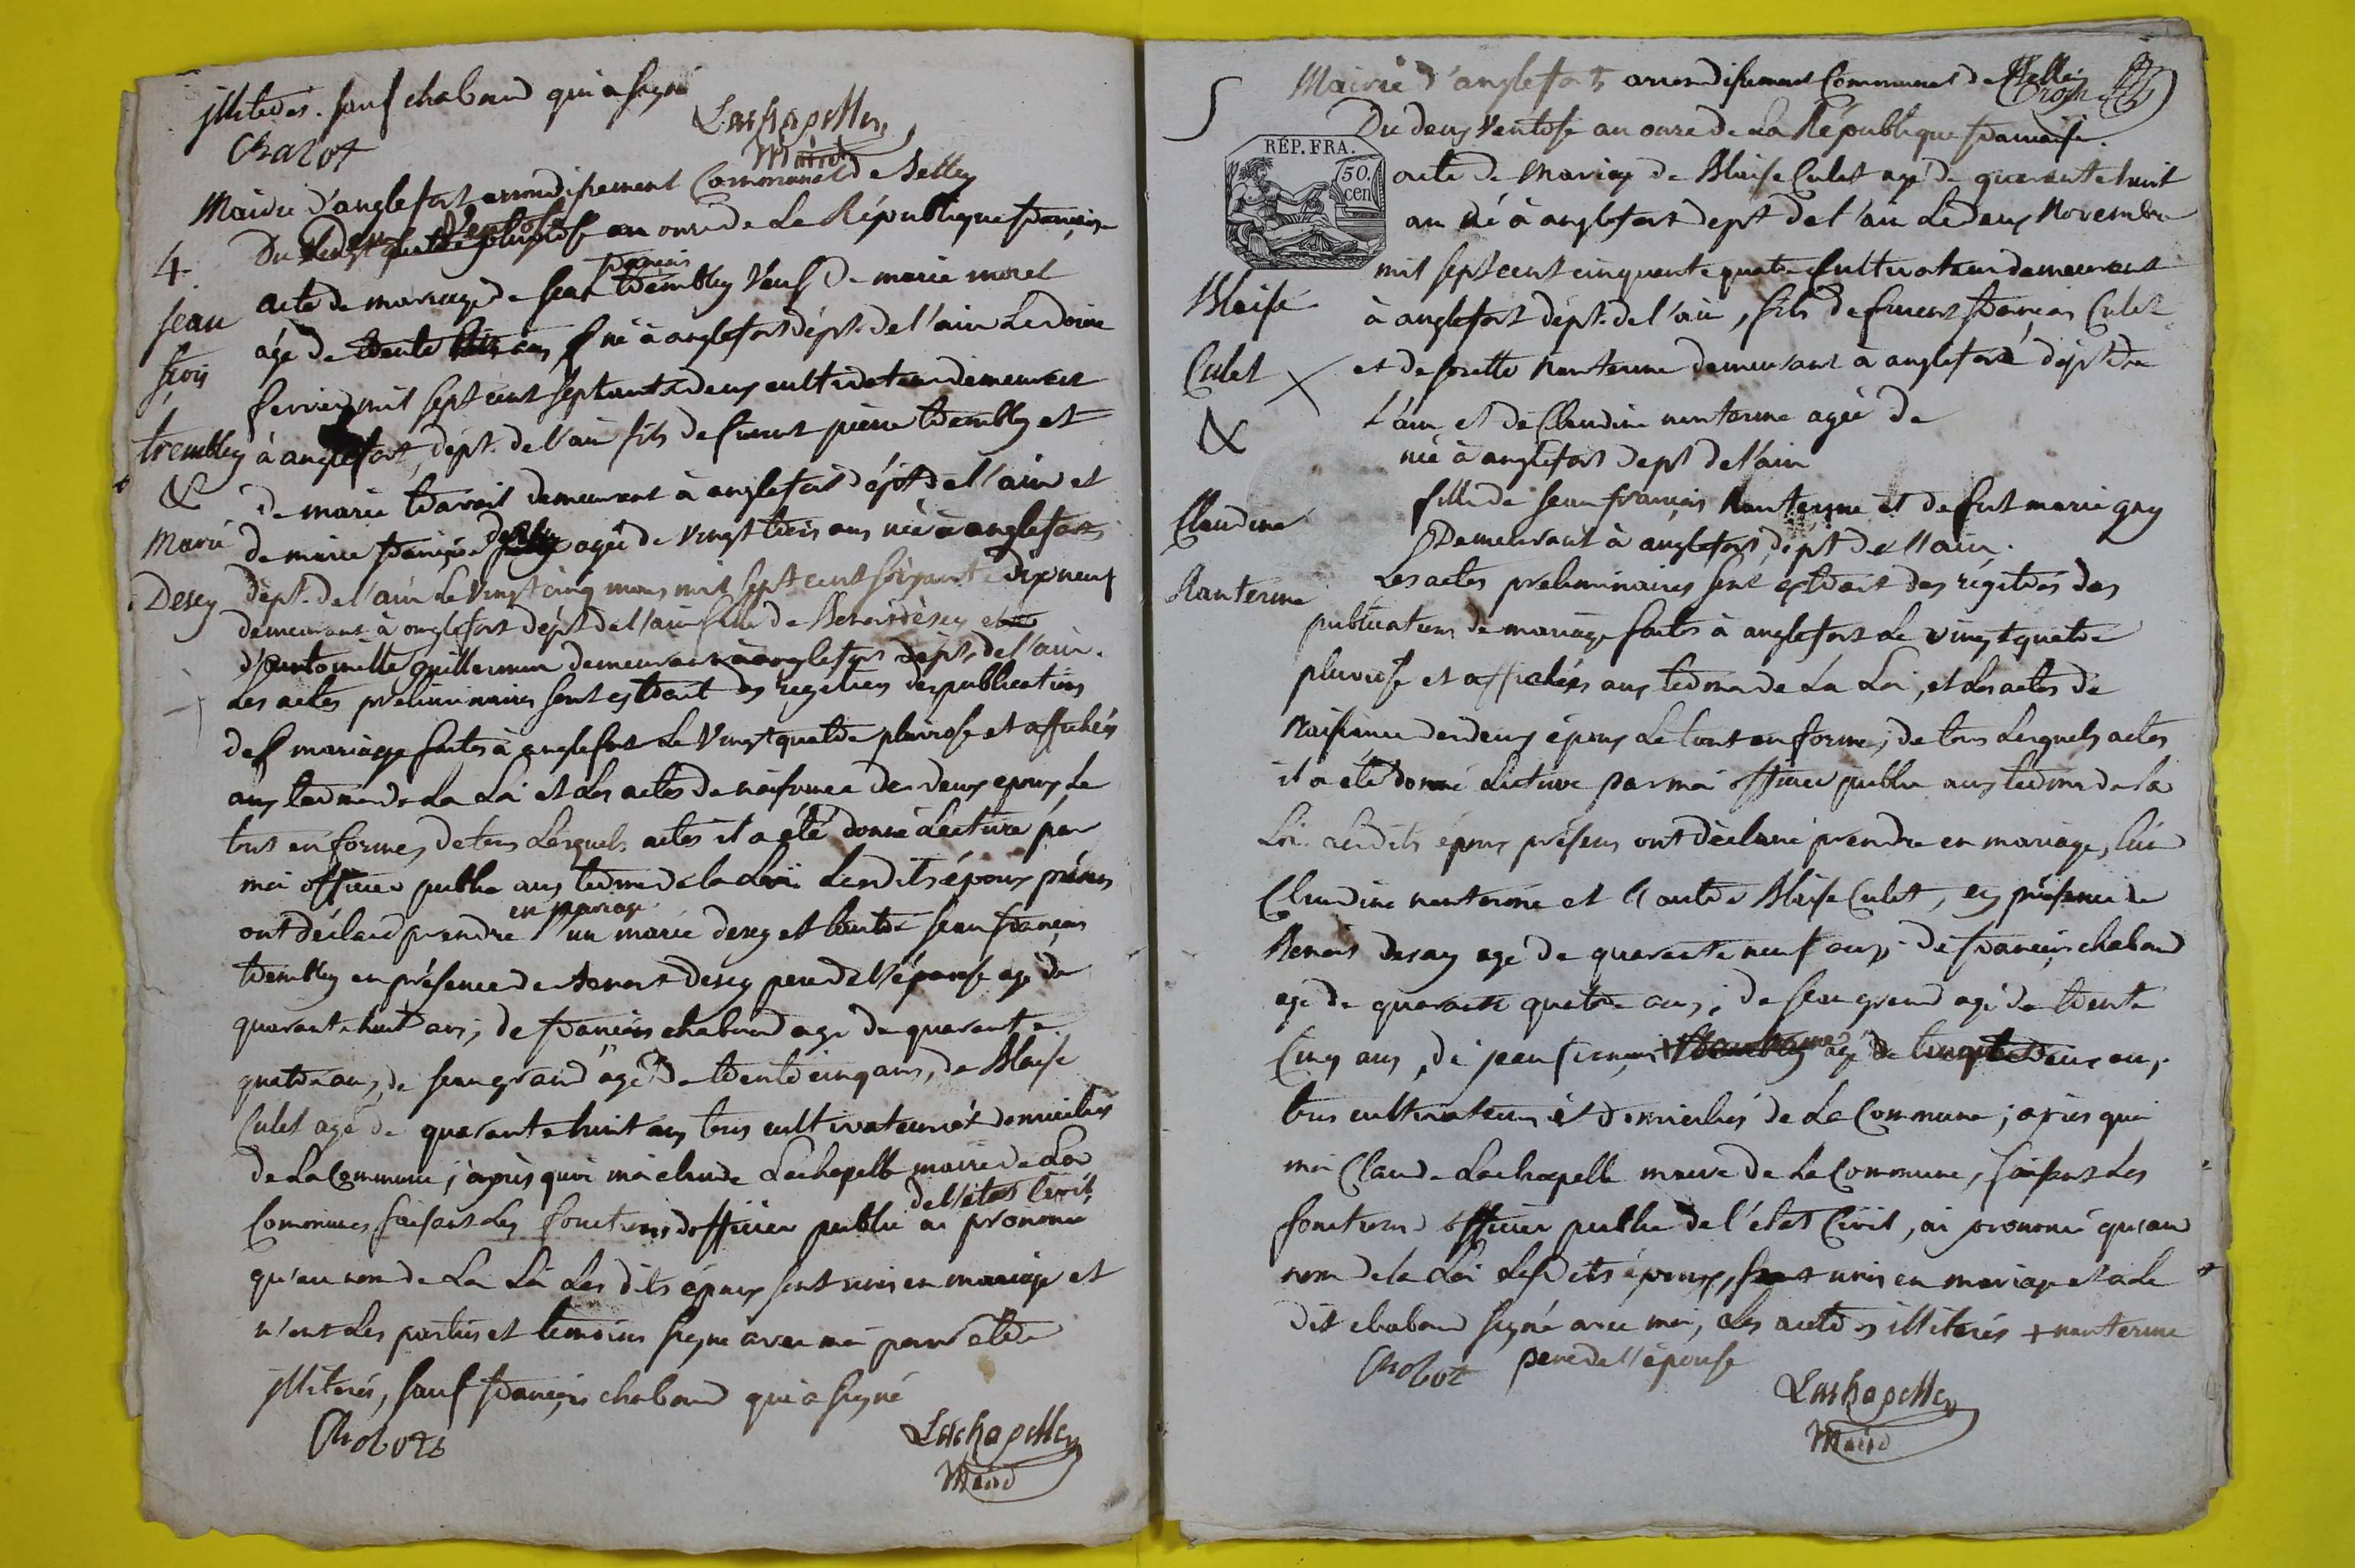 jlliterés. sauf chaboud qui a signé
Chabot
Lachapelle
Maire
Mairie d'anglefort arrondissement Communal de Belley
4
Du deux Ventose an onze de La République française
acte de mariage de Jean françois trembley Veuf de marie morel
âgé de trente ans né à anglefort dépt. de l'ain Le douze
fevrier mil sept cent septante deux cultivateur demeurant
à anglefort, dépt. de l'ain fils de furent pierre trembley et
de marie travail demeurant à anglefort dépt. de l'ain et
de marie françoise desey agée de vingt trois ans née à anglefort
dépt. de l'ain le vingt cinq mars mil sept cent soixante dix neuf
demeurant à anglefort dépt de l'ain fille de Benoit désey et
d'antoinette guillermin demeurant à anglefort dépt. de l'ain.
Les actes préliminaires sont extrait des registres des publications
de mariage faites à anglefort Le Vingt quatre pluviose et affichés
aux termes de La Loi et Les actes de naissance des deux epoux Le
tout en formes de tous Lesquels actes il a été donné Lecture par
moi officier public aux termes de la Loi. Lesdits époux présens
ont déclaré prendre en mariage l'un marie desey et l'autre Jean françois
trembley en présence de benoit desey pere de l'épouse agé de
quarante huit ans, de françois chaboud agé de quarante
quatre ans, de Jean grand agé de trente cinq ans, de Blaise
Culet agé de quarante huit ans tous cultivateurs et domiciliés
de La Commune; après quoi moi claude Lachapelle maire de La
Commune faisant Les fonctions d'officier public de l'état Civil, ai prononcé
qu'au nom de La Loi Les dits époux sont unis en mariage et
n'ont Les parties et temoins signé avec moi pour etre
jlliterés, sauf françois chaboud qui a signé
Chabot
Lachapelle
Maire
Jean
frçois
trembley
&
Marie
Desey
5
Mairie d'anglefort arrondissement Communal de Belley
Du deux Ventose an onze de La République française.
RÉP. FRA.
50.
cen
acte de Mariage de Blaise Culet agé de quarante huit
an né à anglefort dept de l'ain Le deux Novembre
mil sept cent cinquante quatre Cultivateur demeurant
à anglefort dépt. de l'ain, fils de furent françois Culet
et de Josette Nanterme demeurant à anglefort dépt de
L'ain et de Claudine nanterme agée de
née à anglefort dept de l'ain
fille de Jean françois Nanterme et de fut marie guy
Demeurant à anglefort dépt de l'ain.
Les actes preliminaires sont extrait des régitres des
publications de mariage faites à anglefort Le vingt quatre
pluviose et affichés aux termes de La Loi, et Les actes de
Naissance des deux époux Le tout en formes; de tous Lesquels actes
il a été donné Lecture par moi officier public aux termes de la
Loi. Lesdits époux présens ont déclaré prendre en mariage, lui
Claudine nanterme et l'autre Blaise Culet, en présence de
Benoit desay agé de quarante neuf ans, de françois chaboud
agé de quarante quatre ans; de Jean grand agé de trente
Cinq ans, de jean françois + agé de ans,
tous cultivateurs et domiciliés de La Commune; après quoi
moi Claude Lachapelle maire de La Commune, faisant Les
fonctions d'officier public de l'état Civil, ai prononcé qu'au
nom de la Loi Lesdits époux, sont unis en mariage et a Le
dit chaboud signé avec moi, Les autres illiterés + nanterme
pere de l'épouse
Chabot
Lachapelle
Maire
Blaise
Culet
&
Claudine
Nanterme